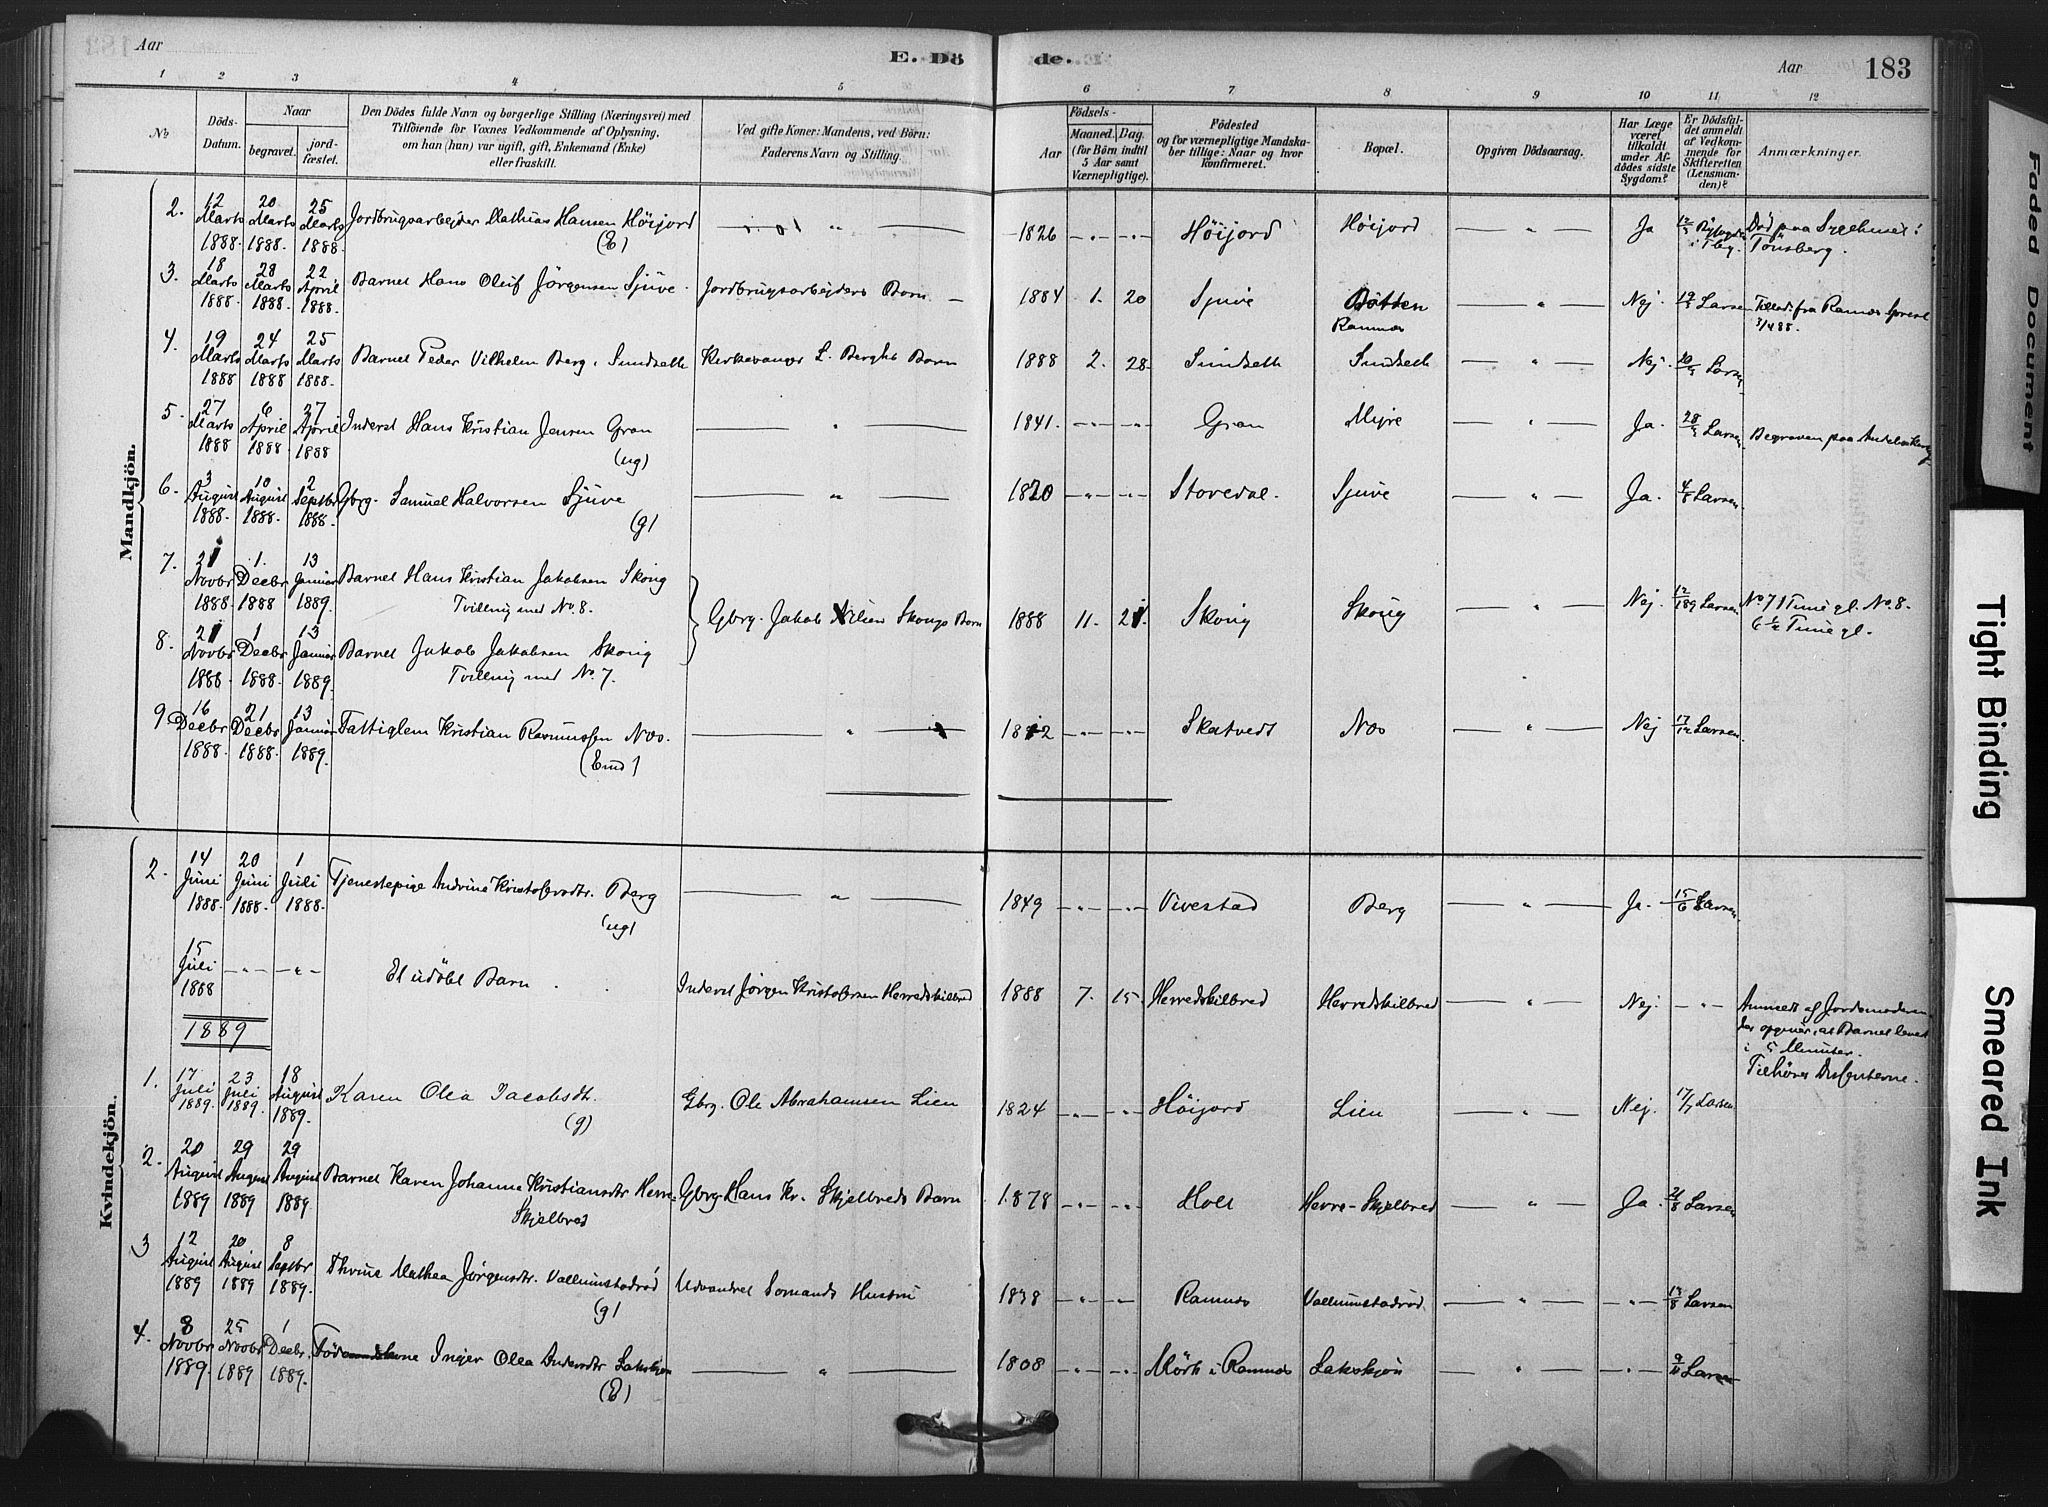 Aar
E. Dö
de.
Aar
183
1 2 3 4 5 6 7 8 9 10 11 12
No
Döds-
Datum.
Naar
begravet.
jord-
fæstet.
Den Dödes fulde Navn og borgerlige Stilling (Næringsvei) med
Tilföiende for Voxnes Vedkommende af Oplysning,
om han (hun) var ugift, gift, Enkemand (Enke)
eller fraskilt.
Ved gifte Koner: Mandens, ved Börn:
Faderens Navn og Stilling.
Födsels-
Aar
Maaned. Dag.
(for Börn indtil
5 Aar samt
Værnepligtige).
Födested
og for værnepligtige Mandska-
ber tillige: Naar og hvor
konfirmeret.
Bopæl.
Opgiven Dödsaarsag.
Har Læge
været
tilkaldt
under Af-
dödes sidste
Sygdom?
Er Dödsfal-
det anmeldt
af Vedkom-
mende for
Skifteretten
(Lensman-
den)?
Anmærkninger.
Mandkjön.
2. 12 Marts 1888. 20 Marts 1888. 25 Marts 1888. Jordbrugsarbejder Mathias Hansen Höijord (E) 1826 Höijord Höijord Ja Död paa Sygehuset i
Tönsberg.
3. 18 Marts 1888. 28 Marts 1888. 22 April 1888. Barnet Hans Oluf Jörgensen Sjuve. Jordbrugsarbejders Barn 1884 1. 20 Sjuve Bötten
Ramnes Nej. 19/3 Larsen fra Ramnes
4. 19 Marts 1888 24 Marts 1888 25 Marts 1888. Barnet Peder Vilhelm Berg, Sundseth Kirkesanger L. Berghs Barn 1888 2. 28. Sundseth Sundseth Nej. 20/3 Larsen
5. 27 Marts 1888 6 April 1888 27 April 1888 Inderst Hans Kristian Jensen Gran
(ug) 1841. Gran Myre Ja. 28/3 Larsen Begraven paa
6. 3 August 1888. 10 August 1888. 2 Septbr 1888. Gbrg. Samuel Halvorsen Sjuve
(g) 1820 Storedal. Sjuve Ja. 4/8 Larsen.
7. 21 Novbr 1888. 1. Decbr 1888 13 Januar 1889. Barnet Hans Kristian Jakobsen Skoug
Tvilling med No. 8.
Gbrg. Jakob Skougs Barn 1888 11. 21. Skoug Skoug Nej. Larsen No. 7 1 Time gl. No. 8.
6 1/2 Time gl.
8. 21 Novbr 1888. 1 Decbr 1888. 13 Januar 1889. Barnet Jakob Jakobsen Skoug
Tvilling med No. 7.
9. 16 Decbr 1888. 21 Decbr 1888. 13 Januar 1889. Fattiglem Kristian Rasmussen Nes.
(Emd) 1812 Skatvedt Nes Nej 17/12 Larsen.
Kvindekjön.
2. 14 Juni 1888. 20 Juni 1888. 1 Juli 1888. Tjenestepige Andrine Kristofersdtr. Berg
(ug) 1849 Vivestad Berg Ja. 15/6 Larsen.
15 Juli 1888 Et udöbt Barn Inderst Jörgen Kristofersen Herredskilbred 1888 7. 15. Herredskilbred Herredskilbred Nej. Anmeldt af Jordemoderen
der opgiver, at Barnet levet
i 5 Minuter.
Tilhörer Dissenterne.
1889
1. 17 Juli 1889. 23 Juli 1889. 18 August 1889. Karen Olea Jacobsdt.
(g) Gbrg. Ole Abrahamsen Lien 1824 Höijord Lien Nej. 17/7 Larsen
2. 20 August 1889 29 August 1889 29 August 1889. Barnet Karen Johanne Kristiansdtr Herre-
Skjelbred Gbrg. Hans Kr. Skjelbreds Barn 1878 Holt Herre-Skjelbred Ja. 21/8 Larsen
3 12 August 1889 20 August 1889 8 Septbr 1889. Thrine Mathea Jörgensdtr. Vallumstadröd
(g) Udvandret Sömands Hustru 1838 Ramnes Vallumstadröd 13/8 Larsen
4. 8 Novbr 1889. 25 Novbr 1889 1 Decbr. 1889. Inger Olea Andersdtr Lakskjön
(E) 1808 Mörk i Ramnes Lakskjön 9/11 Larsen
Faded Document
Tight Binding
Smeared Ink